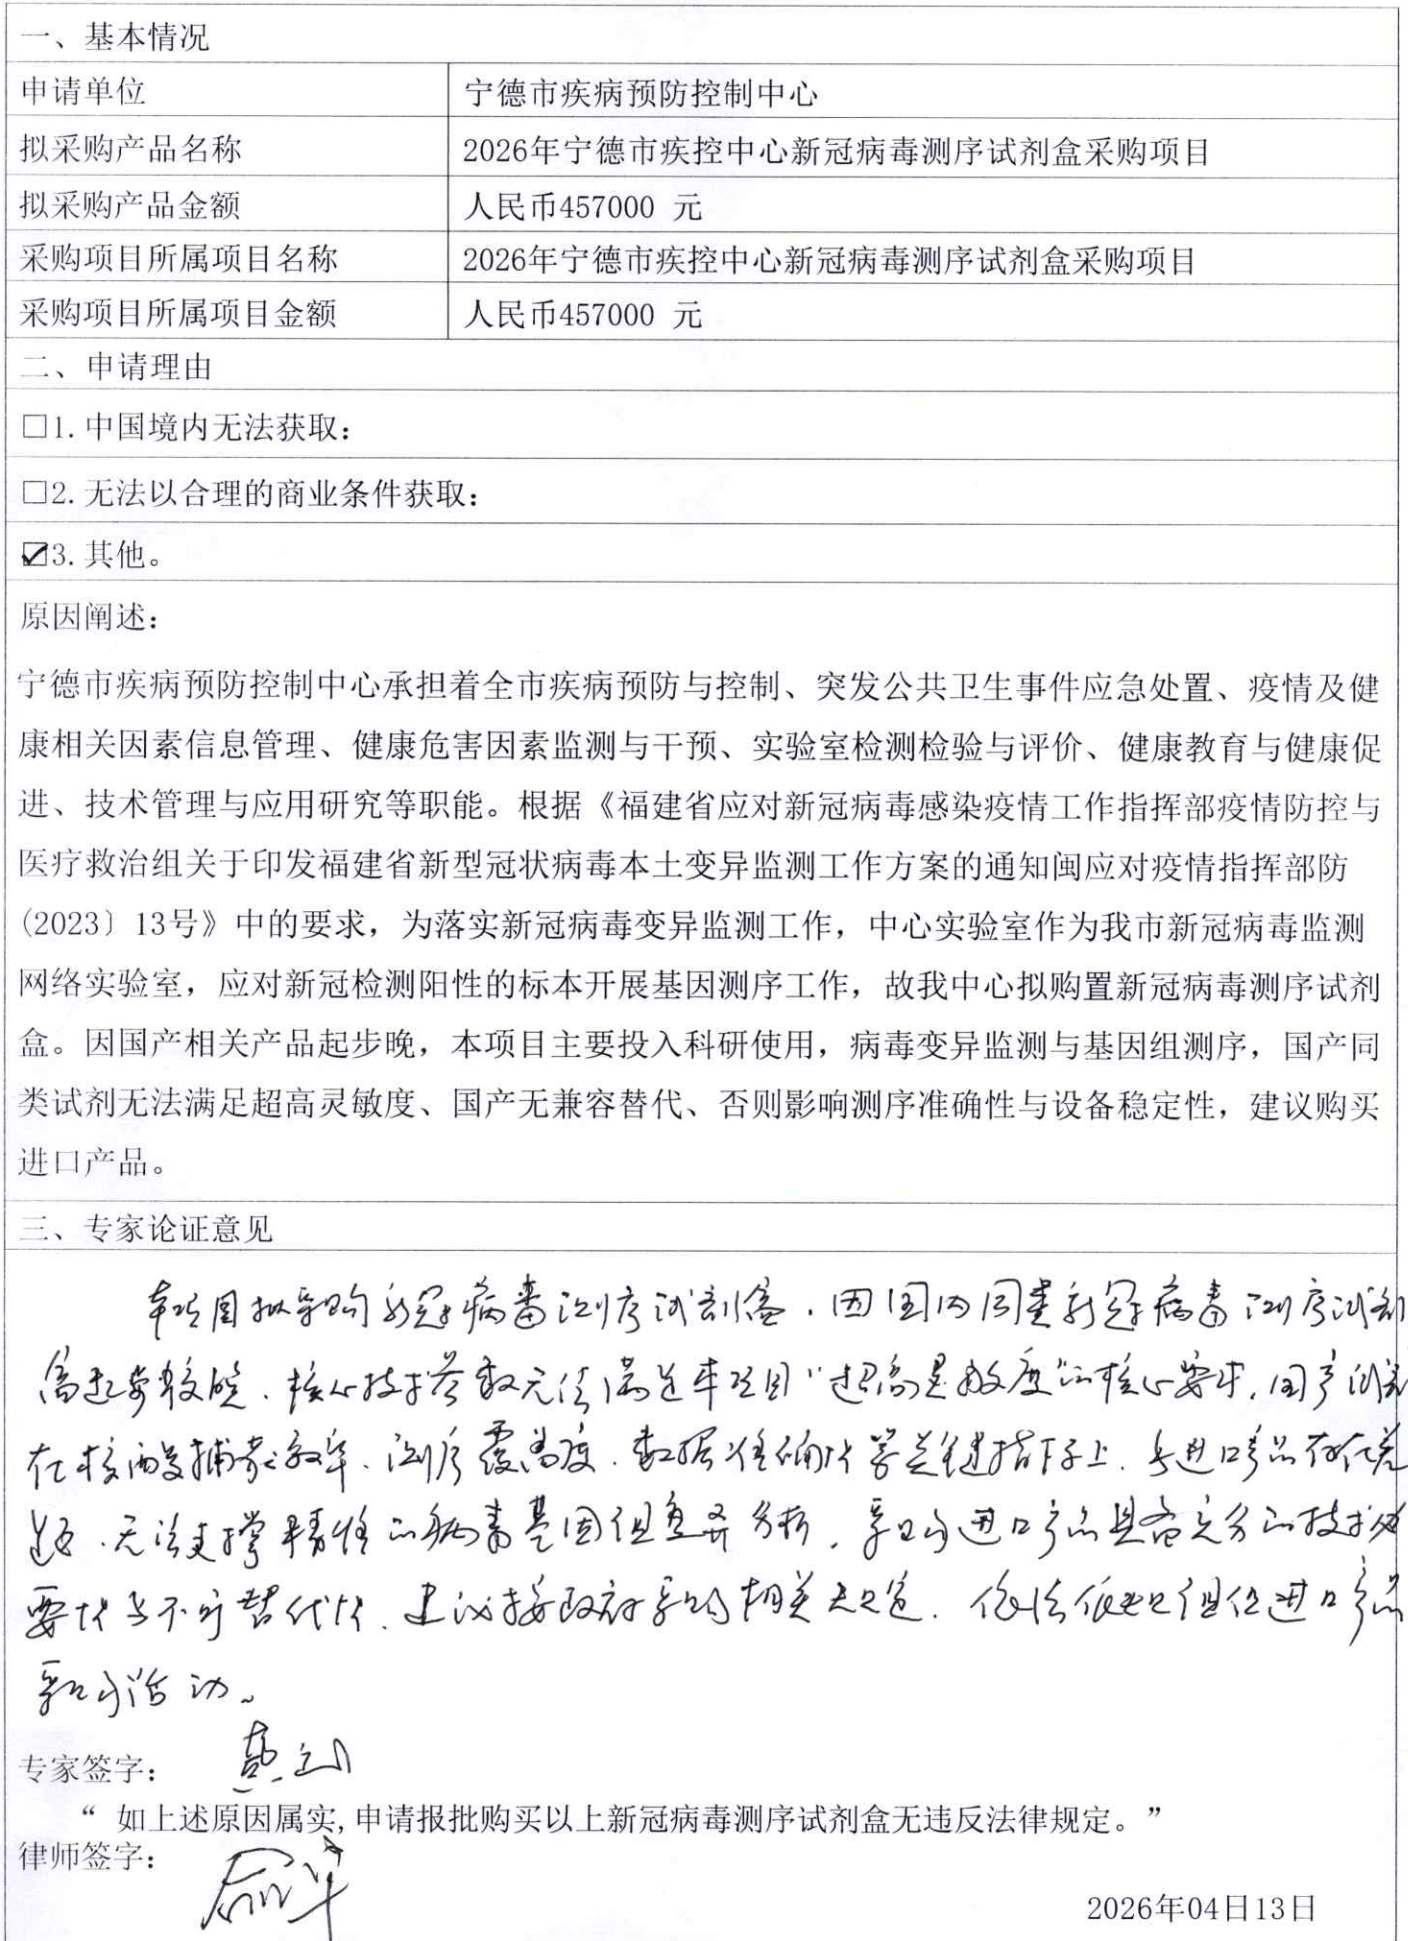 一、基本情况
申请单位 宁德市疾病预防控制中心
拟采购产品名称 2026年宁德市疾控中心新冠病毒测序试剂盒采购项目
拟采购产品金额 人民币457000 元
采购项目所属项目名称 2026年宁德市疾控中心新冠病毒测序试剂盒采购项目
采购项目所属项目金额 人民币457000 元
二、申请理由
□1. 中国境内无法获取：
□2. 无法以合理的商业条件获取：
☑3. 其他。
原因阐述：
宁德市疾病预防控制中心承担着全市疾病预防与控制、突发公共卫生事件应急处置、疫情及健
康相关因素信息管理、健康危害因素监测与干预、实验室检测检验与评价、健康教育与健康促
进、技术管理与应用研究等职能。根据《福建省应对新冠病毒感染疫情工作指挥部疫情防控与
医疗救治组关于印发福建省新型冠状病毒本土变异监测工作方案的通知闽应对疫情指挥部防
（2023〕13号》中的要求，为落实新冠病毒变异监测工作，中心实验室作为我市新冠病毒监测
网络实验室，应对新冠检测阳性的标本开展基因测序工作，故我中心拟购置新冠病毒测序试剂
盒。因国产相关产品起步晚，本项目主要投入科研使用，病毒变异监测与基因组测序，国产同
类试剂无法满足超高灵敏度、国产无兼容替代、否则影响测序准确性与设备稳定性，建议购买
进口产品。
三、专家论证意见
本项目拟采购新冠病毒测序试剂盒，因国内同类新冠病毒测序试剂
盒起步较晚、核心技术参数无法满足本项目“超高灵敏度”的核心要求，国产试剂
在核酸捕获效率、测序覆盖度、数据准确性等关键指标上，与进口产品存在差
距，无法支撑精准的病毒基因组变异分析，采购进口产品具备充分的技术必
要性与不可替代性，建议按政府采购相关规定，依法依规组织进口产品
采购活动。
专家签字：
“ 如上述原因属实,申请报批购买以上新冠病毒测序试剂盒无违反法律规定。”
律师签字：
2026年04日13日